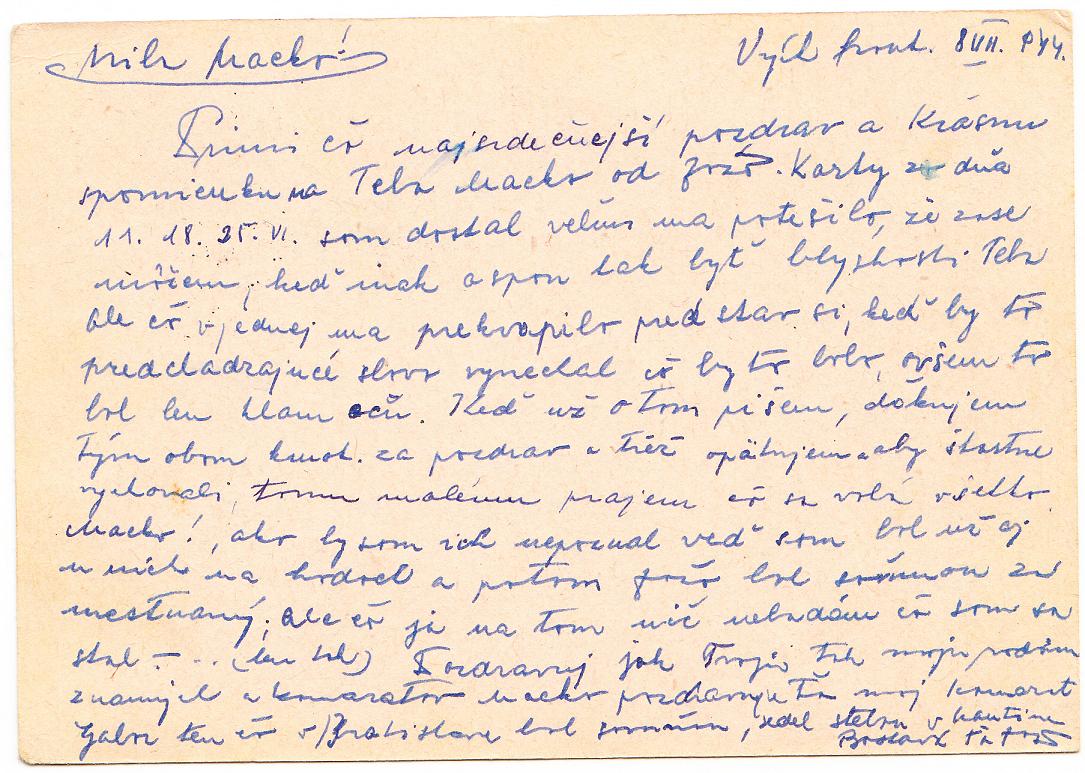 Milá Macko!
Vých front. 8VII. 944.
Prijmi čo najsrdečnejší pozdrav a Krásnu
spomienku na Teba Macko od Jožo. Karty zo dňa
11. 18. 25. VI. som dostal veľmi ma potešilo, že zase
môžem, keď inak aspon tak byť blyskosti Teba
Ale čo v jednej ma prekvapilo pred stav si, keď by to
predchadzajucé slovo vynechal čo by to bolo, ovšem to
bol len klam očú. Keď už o tom pišem, ďakujem
tým obom kmot. za pozdrav a tiež opätujem a aby štastne
vychovali, tomu malému prajem čo sa volá všetko
Macko!, ako by som ich nepoznal veď som bol už aj
u nich na hodoch a potom Jožo bol somnou za
mestnaný, Ale čo já na tom nič nebadám čo som sa
stal - .. (len tak) Pozdravuj jak Tvojich tak mojich rodičov
znamých a kamaratov Macko pozdravuje Ťa moj kamarat
Gabor ten čo v Bratislave bol somnou, sedel stebou v kantine
Boskáva Ťa Jožo